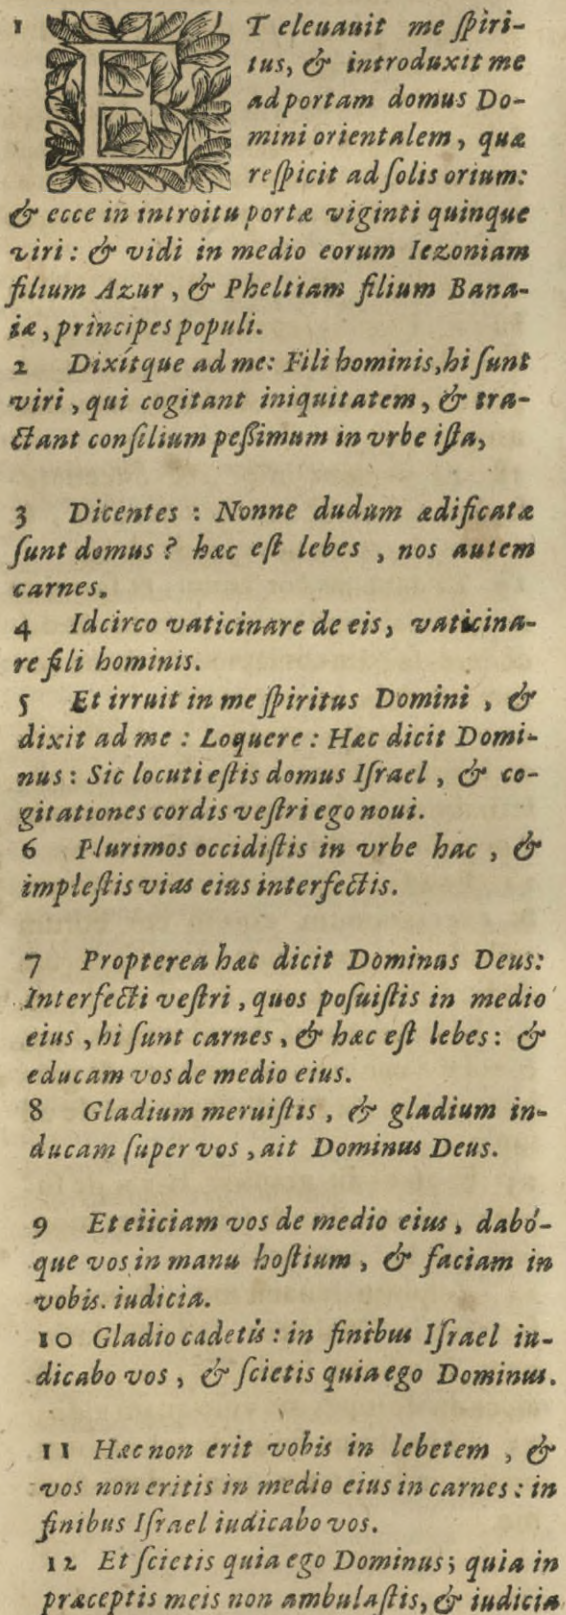 1 ET eleuauit me ſpiri-
tus, & introduxit me
ad portam domus Do-
mini orientalem, quæ
reſpicit ad ſolis orium:
& ecce in introitu portæ viginti quinque
viri: & vidi in medio eorum Iezoniam
filium Azur, & Pheltiam filium Bana-
iæ, principes populi.
2 Dixítque ad me: Fili hominis, hi ſunt
viri, qui cogitant iniquitatem, & tra-
ctant conſilium peßimum in vrbe iſta,
3 Dicentes : Nonne dudum ædificatæ
ſunt domus ? hæc eſt lebes , nos autem
carnes.
4 Idcirco vaticinare de eis, vaticina-
re fili hominis.
5 Et irruit in me ſpiritus Domini , &
dixit ad me : Loquere : Hæc dicit Domi-
nus : Sic locuti eſtis domus Iſrael , & co-
gitationes cordis veſtri ego noui.
6 Plurimos occidiſtis in vrbe hac , &
impleſtis vias eius interfectis.
7 Propterea hæc dicit Dominus Deus:
Interfecti veſtri , quos poſuiſtis in medio
eius , hi ſunt carnes , & hæc eſt lebes : &
educam vos de medio eius.
8 Gladium meruiſtis , & gladium in-
ducam ſuper vos , ait Dominus Deus.
9 Et eiiciam vos de medio eius , dabó-
que vos in manu hoſtium , & faciam in
vobis. iudicia.
10 Gladio cadetis : in finibus Iſrael iu-
dicabo vos , & ſcietis quia ego Dominus.
11 Hæc non erit vobis in lebetem , &
vos non eritis in medio eius in carnes : in
finibus Iſrael iudicabo vos.
12 Et ſcietis quia ego Dominus; quia in
præceptis meis non ambulaſtis, & iudicia